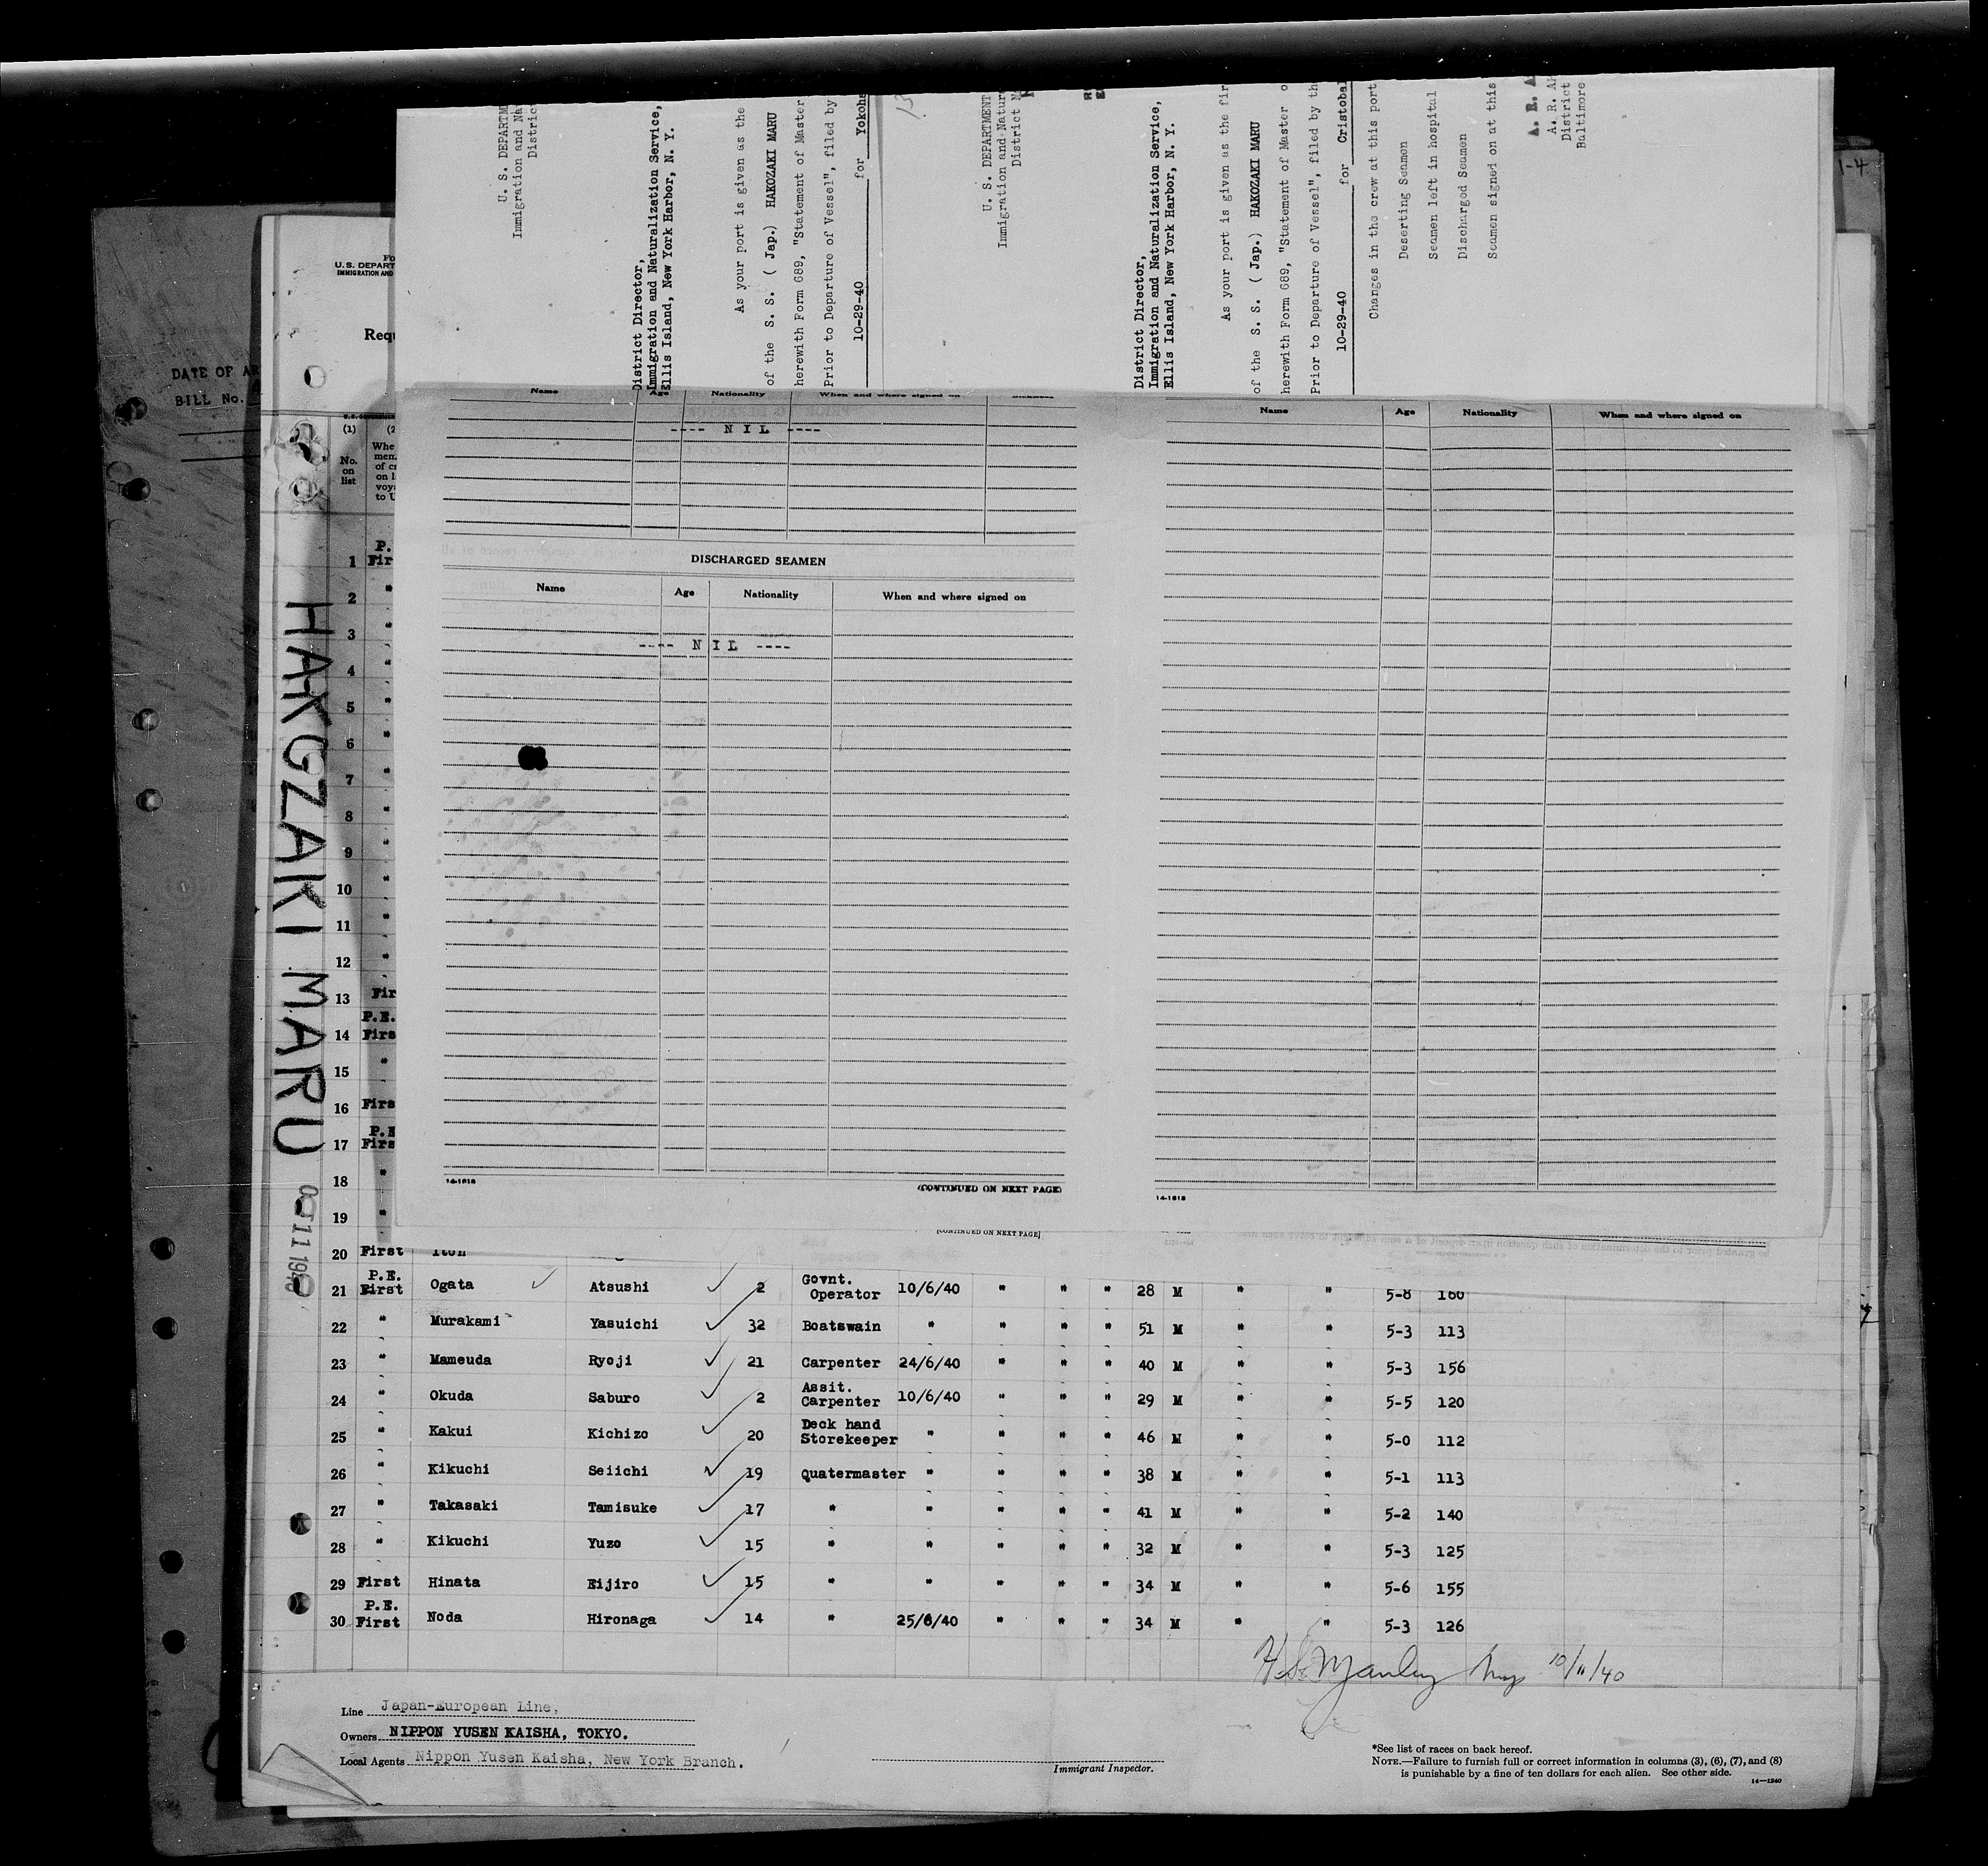 U. S. DEPARTM
Immigration and Na
Distric
District Director,
Immigration and Naturalization Service,
Ellis Island, New York Harbor, N. Y.
As your port is given as the
of the S. S. ( Jap.) HAKOZAKI MARU
herewith Form 689, "Statement of Master
Prior to Departure of Vessel", filed by
10-29-40 for Yokoha
13
U. S. DEPARTMENT
Immigration and Natur
District N
District Director,
Immigration and Naturalization Service,
Ellis Island, New York Harbor, N. Y.
As your port is given as the fir
of the S. S. ( Jap.) HAKOZAKI MARU
herewith Form 689, "Statement of Master o
Prior to Departure of Vessel", filed by th
10-29-40 for Cristobal
Changes in the crew at this port
Deserting Seamen
Seamen left in hospital
Discharged Seamen
Seamen signed on at this
A. R. A
A. R. Ar
District
Baltimore
1-4
DATE OF AR
BILL No.
Fo
U.S. DEPART
IMMIGRATION AND
Requ
(1) (2
No. on list
Whe
men
of c
on l
voy
to U
HAKOZAKI MARU
OCT 11 1940
Name Age Nationality When and where signed on Sickness
---- N I L ----
DISCHARGED SEAMEN
Name Age Nationality When and where signed on
---- N I L ----
14-1618
(CONTINUED ON NEXT PAGE)
Name Age Nationality When and where signed on
14-1618
[CONTINUED ON NEXT PAGE]
1 P. Fir
2 "
3 "
4 "
5 "
6 "
7 "
8 "
9 "
10 "
11 "
12 "
13 Fir
14 P.E. Firs
15 "
16 Firs
17 P.E Firs
18 "
19 "
20 First Itoh
21 P.E. First Ogata Atsushi 2 Govnt. Operator 10/6/40 " " " 28 M " " 5-8 160
22 " Murakami Yasuichi 32 Boatswain " " " " 51 M " " 5-3 113
23 " Mameuda Ryoji 21 Carpenter 24/6/40 " " " 40 M " " 5-3 156
24 " Okuda Saburo 2 Assit. Carpenter 10/6/40 " " " 29 M " " 5-5 120
25 " Kakui Kichizo 20 Deck hand Storekeeper " " " " 46 M " " 5-0 112
26 " Kikuchi Seiichi 19 Quatermaster " " " " 38 M " " 5-1 113
27 " Takasaki Tamisuke 17 " " " " " 41 M " " 5-2 140
28 " Kikuchi Yuzo 15 " " " " " 32 M " " 5-3 125
29 First Hinata Eijiro 15 " " " " " 34 M " " 5-6 155
30 P.E. First Noda Hironaga 14 " 25/6/40 " " " 34 M " " 5-3 126
H.S. Manley Insp 10/11/40
Line Japan-European Line,
Owners NIPPON YUSEN KAISHA, TOKYO.
Local Agents Nippon Yusen Kaisha, New York Branch.
Immigrant Inspector.
*See list of races on back hereof.
NOTE.—Failure to furnish full or correct information in columns (3), (6), (7), and (8)
is punishable by a fine of ten dollars for each alien. See other side.
14—1240